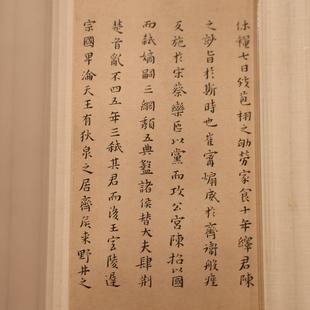 糧七日苞栩之劬勞家食十年繹君陳
之旨於斯時也崔甯煽威於齊衛般痤
及施於宋蔡欒以黨而攻公宮陳招以國
而弒嫡嗣三綱頹五典盭諸侯替大夫肆荆
楚首亂不四五年三弒其君而後王室陵遲
宗國卑淪天王有狄泉之居齊侯來野井之